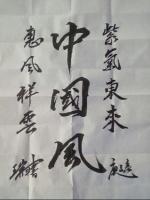 紫氣東來
中國風
惠風祥雲